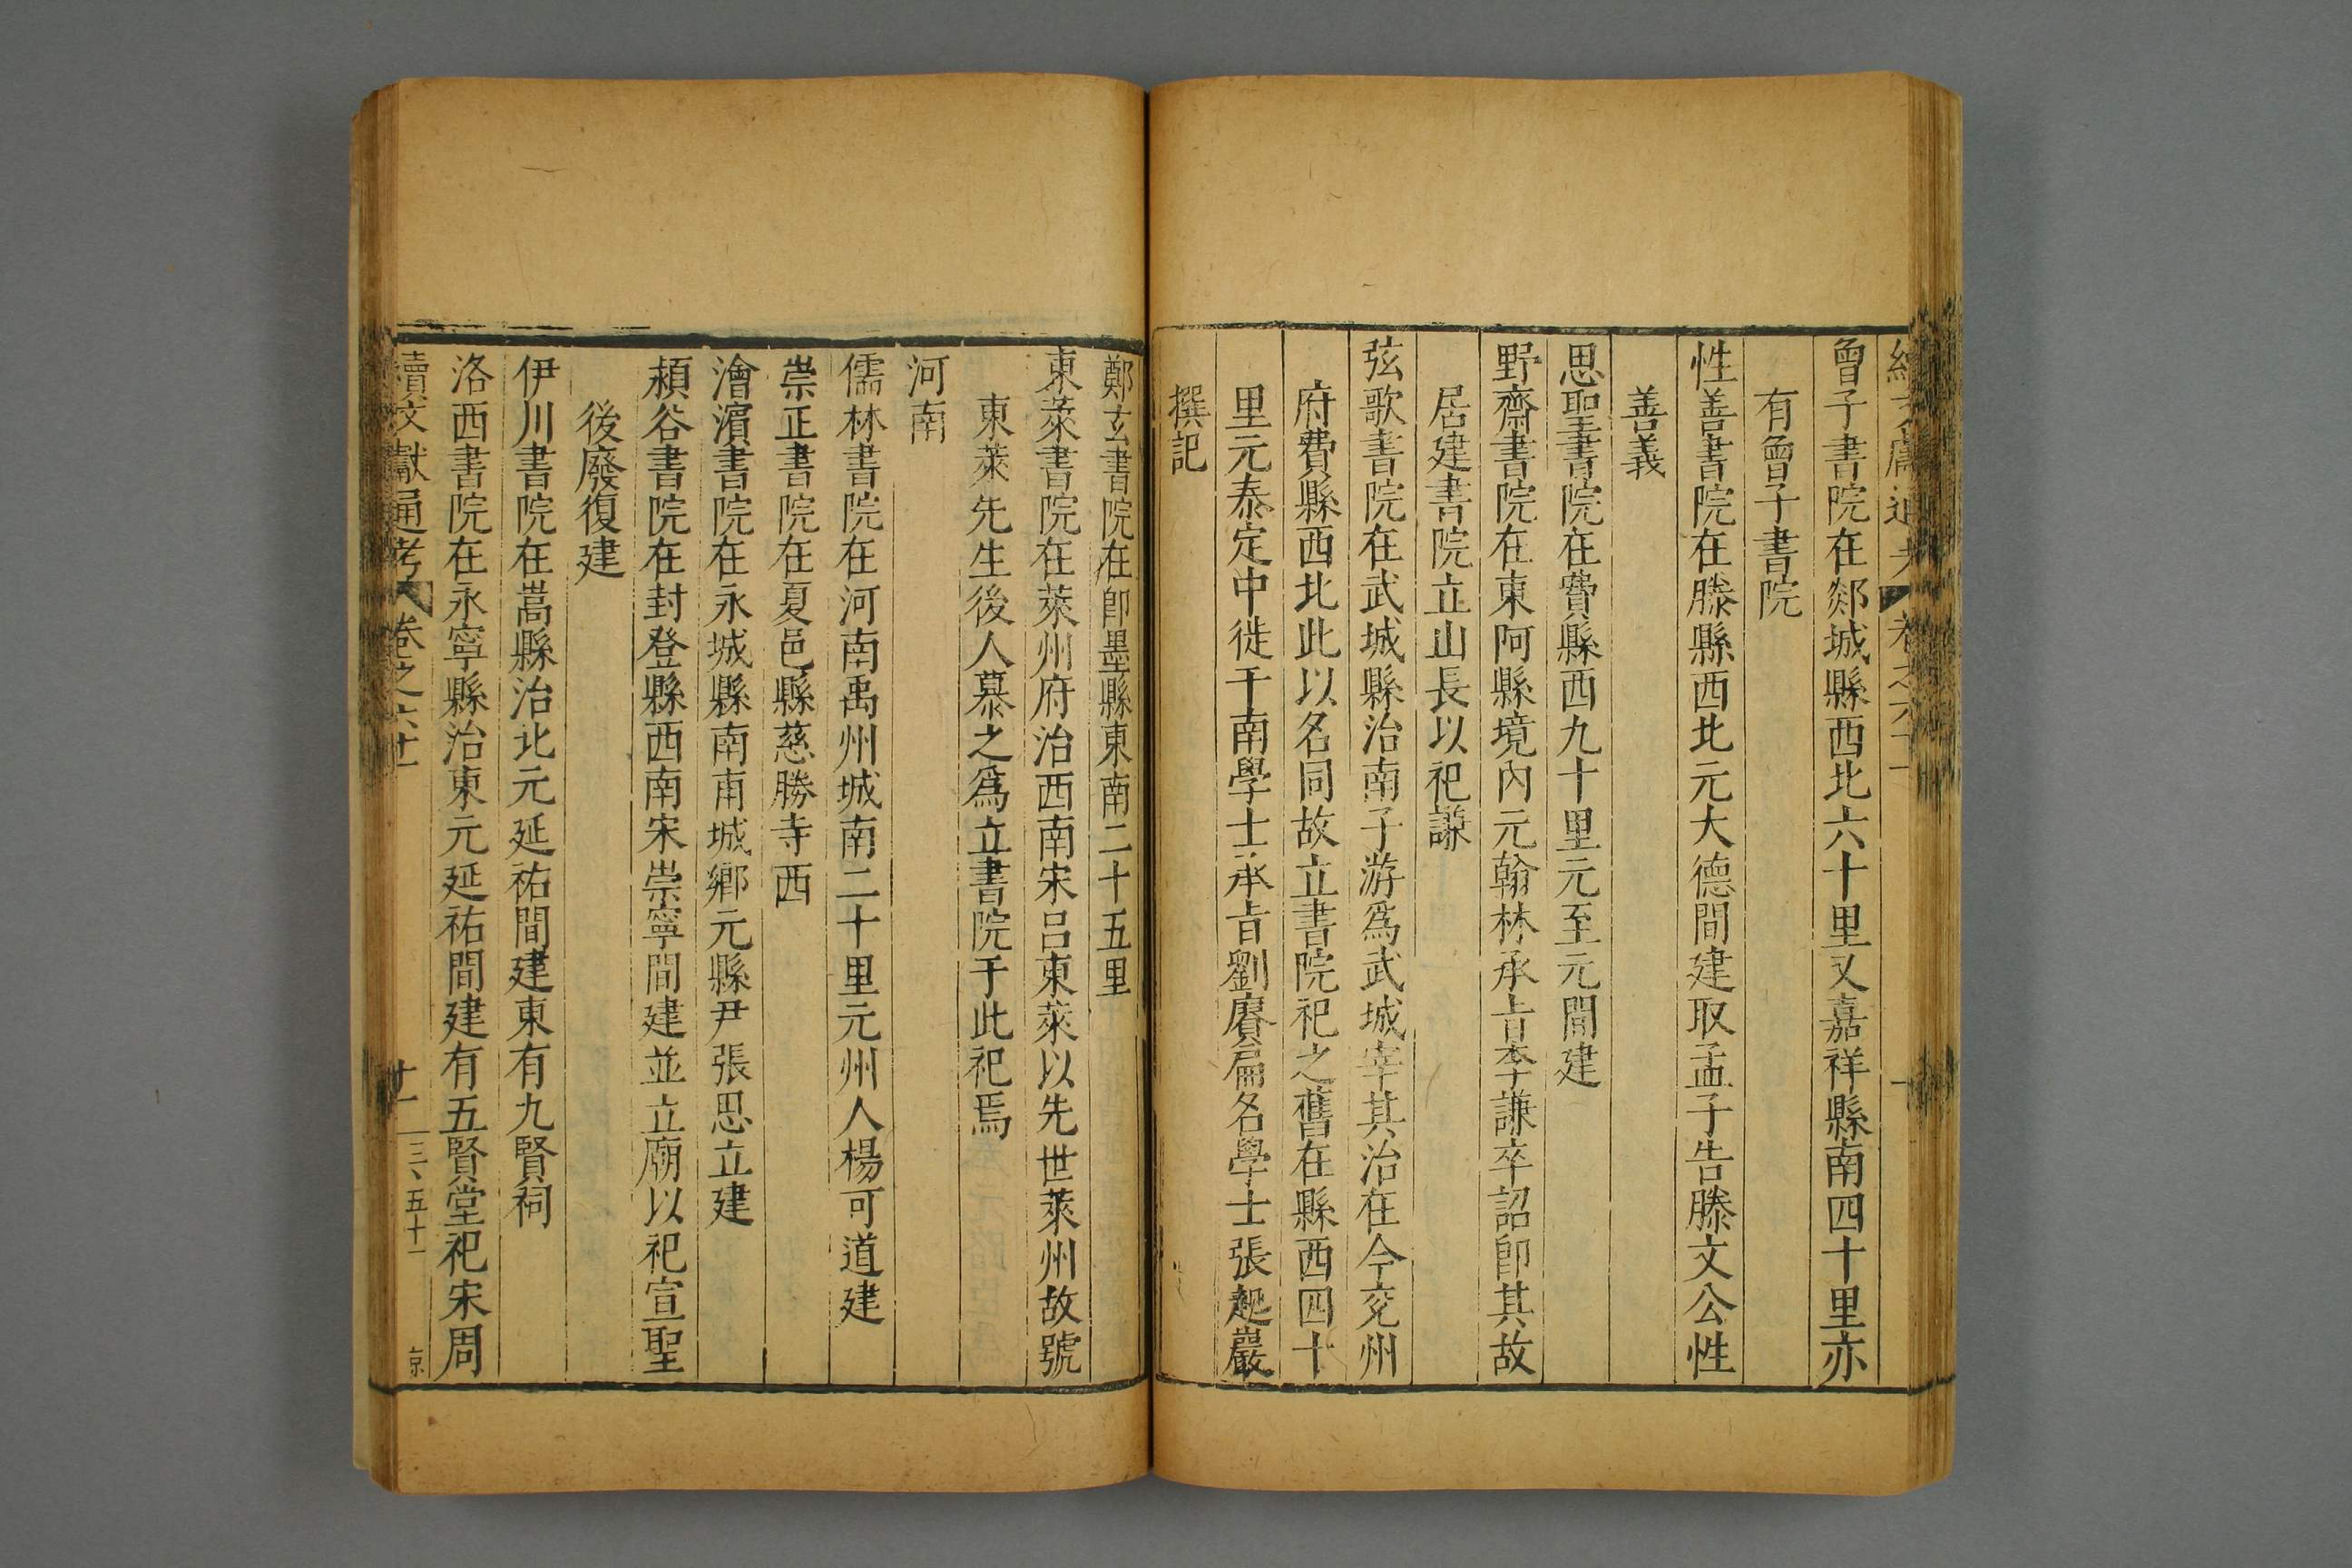 曾子書院在郯城縣西北六十里又嘉祥縣南四十里亦
有曾子書院
性善書院在滕縣西北元大德間建取孟子告滕文公性
善義
思聖書院在費縣西九十里元至元間建
野齋書院在東阿縣境內元翰林承旨李謙卒詔卽其故
居建書院立山長以祀謙
弦歌書院在武城縣治南子游爲武城宰其治在今兗州
府費縣西北此以名同故立書院祀之舊在縣西四十
里元泰定中徙于南學士承旨劉賡扁名學士張起巖
撰記
鄭玄書院在卽墨縣東南二十五里
東萊書院在萊州府治西南宋呂東萊以先世萊州故號
東萊先生後人慕之爲立書院于此祀焉
河南
儒林書院在河南禹州城南二十里元州人楊可道建
崇正書院在夏邑縣慈勝寺西
澮濵書院在永城縣南甫城鄉元縣尹張思立建
潁谷書院在封登縣西南宋崇寧間建並立廟以祀宣聖
後廢復建
伊川書院在嵩縣治北元延祐間建東有九賢祠
洛西書院在永寧縣治東元延祐間建有五賢堂祀宋周
續文獻通考 卷之六十一 十一 三、五十一 京